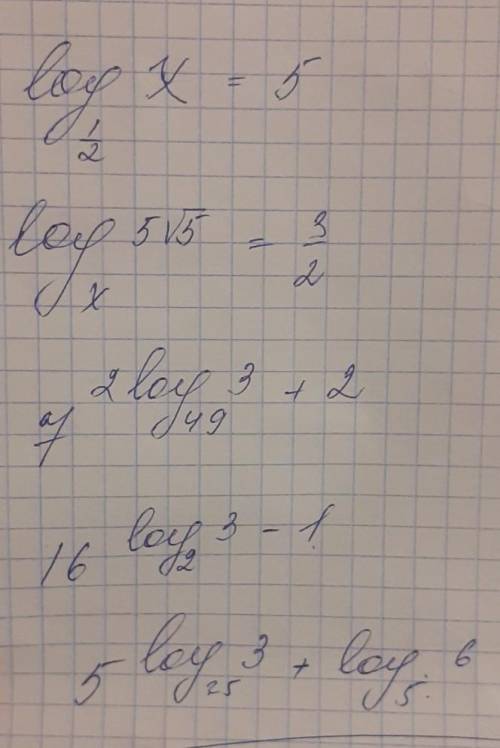 log_{1/2} x = 5
log_x 5√5 = 3/2
7^{2 log_{49} 3 + 2}
16^{log_2 3 - 1}
5^{log_{25} 3 + log_5 6}